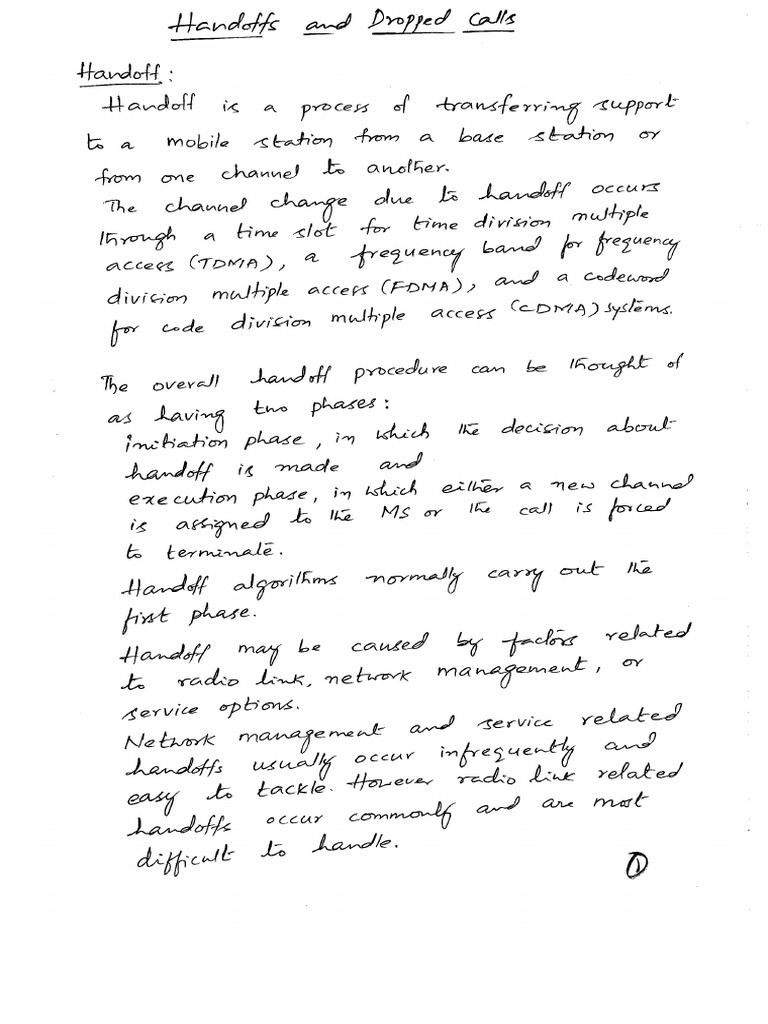 Handoffs and Dropped Calls
Handoff :
Handoff is a process of transferring support
to a mobile station from a base station or
from one channel to another.
The channel change due to handoff occurs
through a time slot for time division multiple
access (TDMA), a frequency band for frequency
division multiple access (FDMA), and a codeword
for code division multiple access (CDMA) systems.
The overall handoff procedure can be thought of
as having two phases :
initiation phase, in which the decision about
handoff is made and
execution phase, in which either a new channel
is assigned to the MS or the call is forced
to terminate.
Handoff algorithms normally carry out the
first phase.
Handoff may be caused by factors related
to radio link, network management, or
service options.
Network management and service related
handoffs usually occur infrequently and
easy to tackle. However radio link related
handoffs occur commonly and are most
difficult to handle.
1